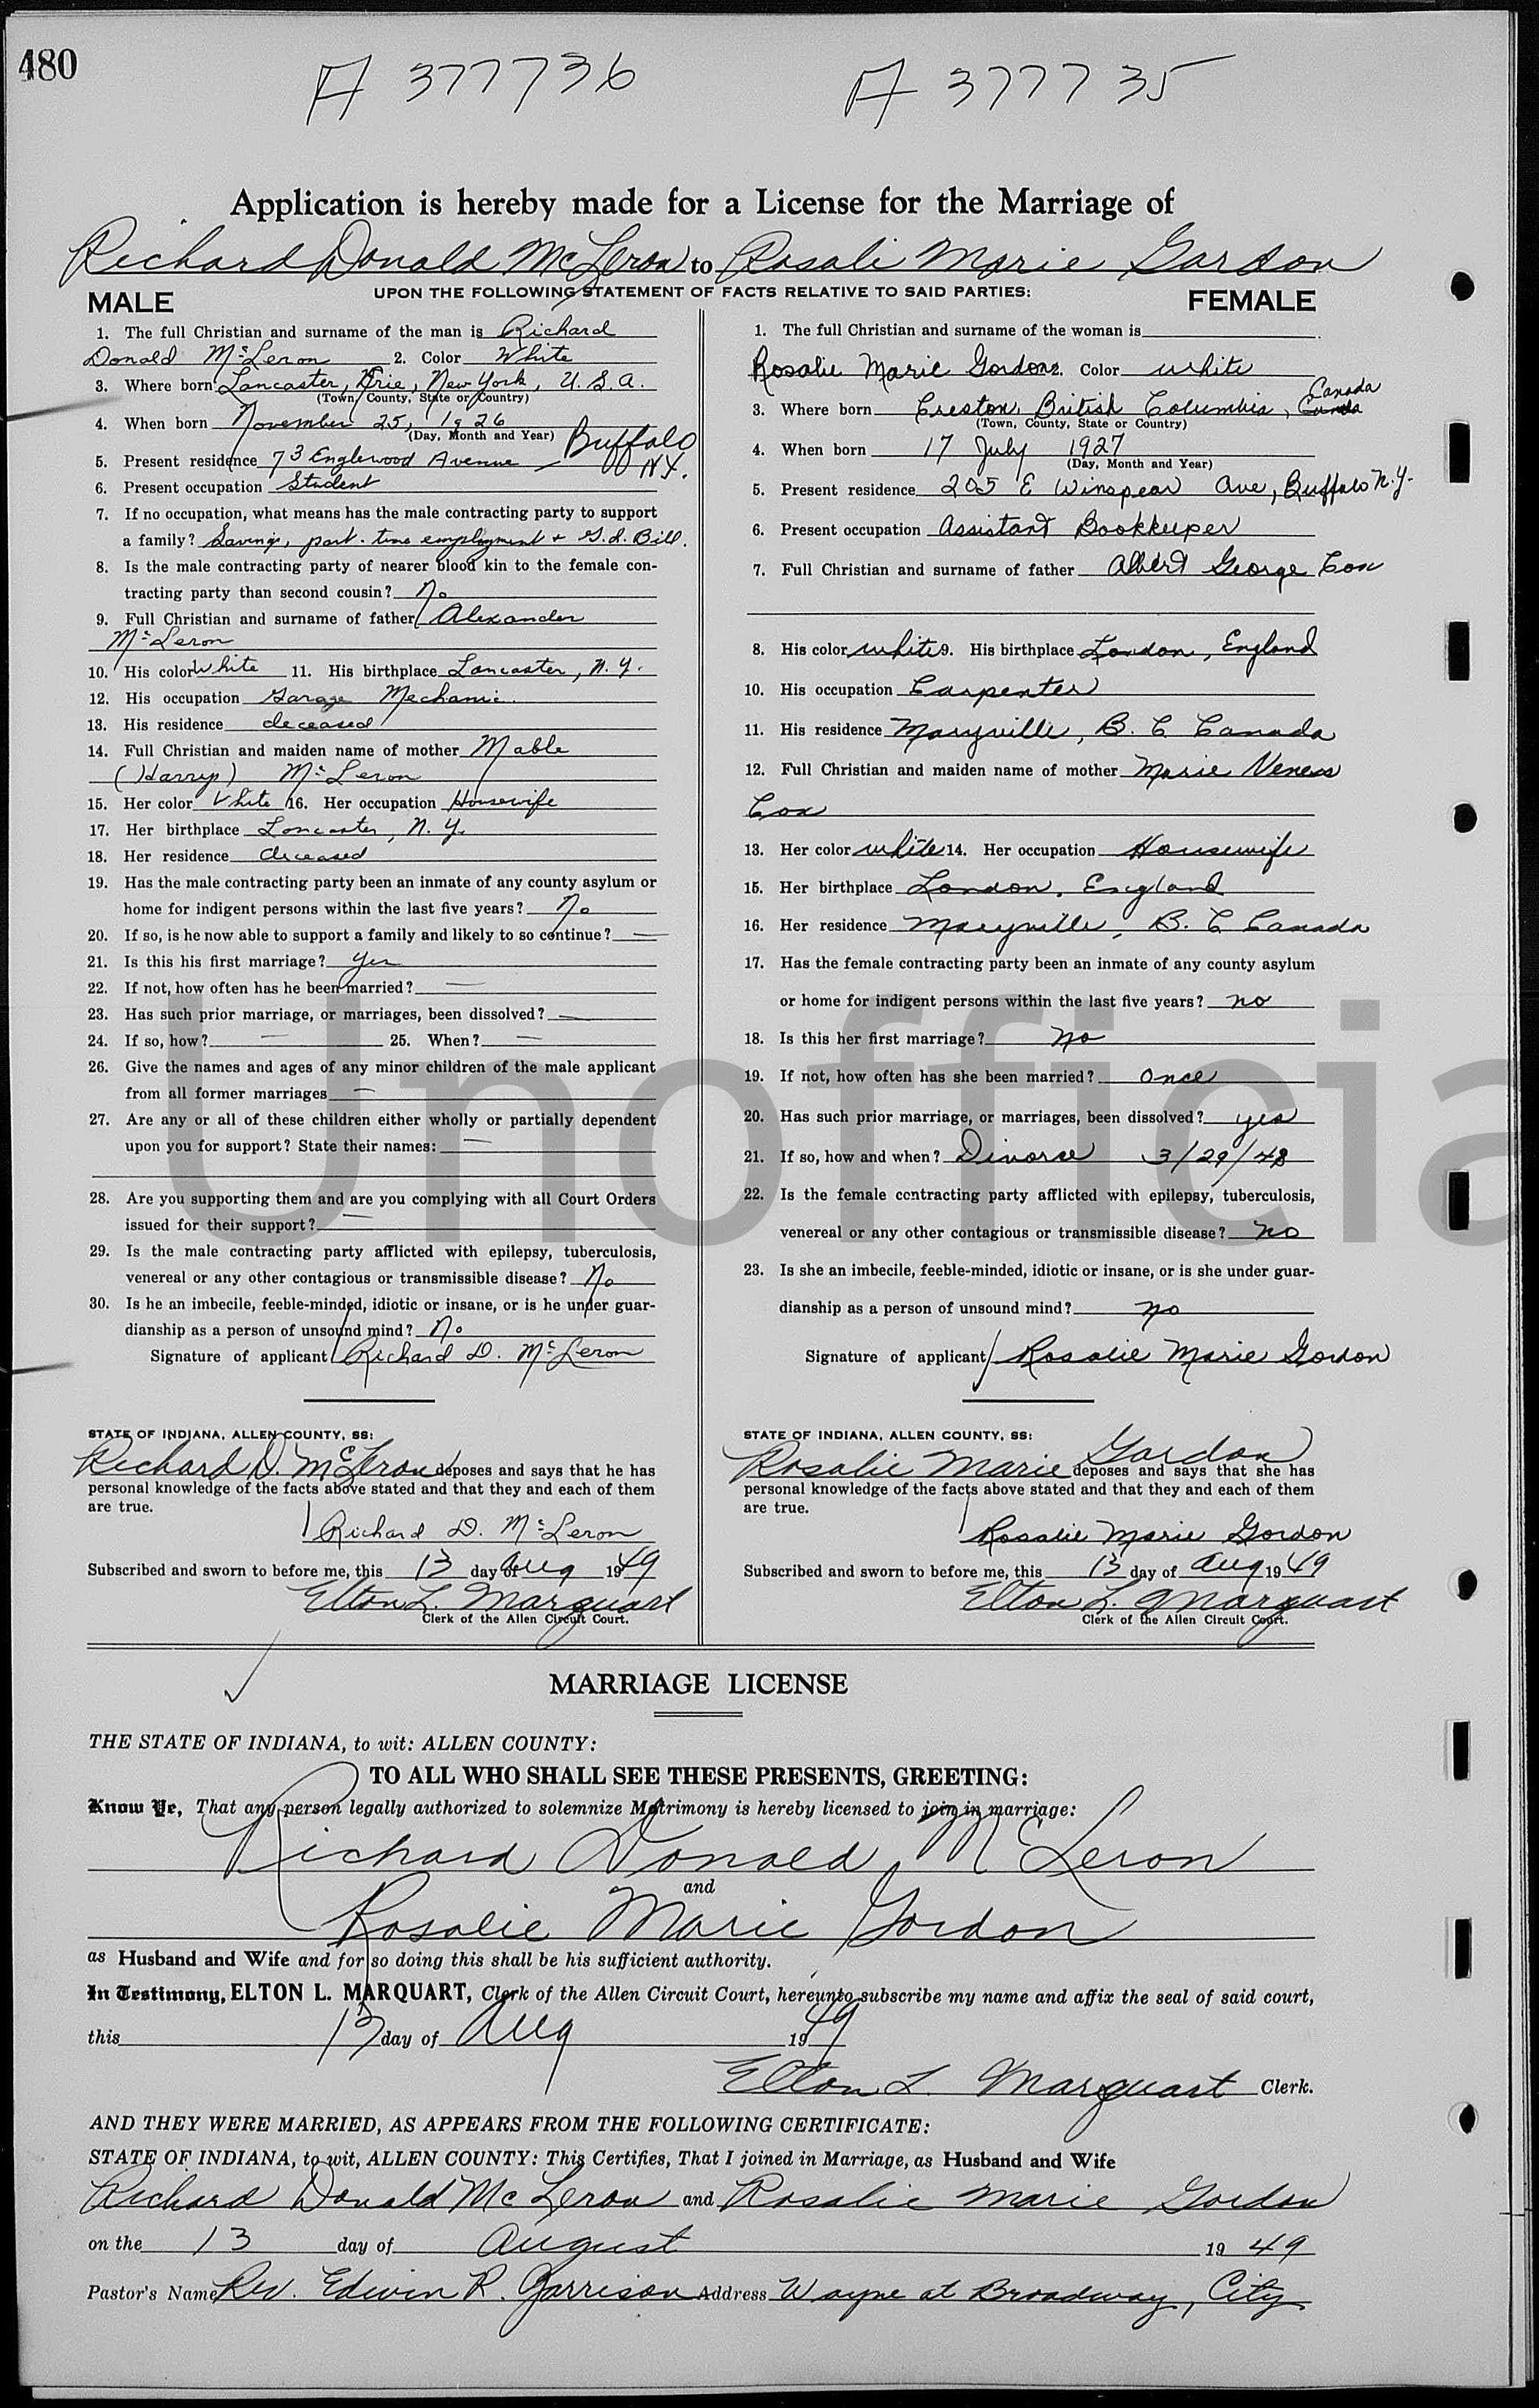 480
A 377736 A 377735
Application is hereby made for a License for the Marriage of
Richard Donald McLeron to Rosali Marie Gordon
UPON THE FOLLOWING STATEMENT OF FACTS RELATIVE TO SAID PARTIES:
MALE
1. The full Christian and surname of the man is Richard
Donald McLeron 2. Color White
3. Where born Lancaster, Erie, New York, U.S.A.
(Town, County, State or Country)
4. When born November 25, 1926
(Day, Month and Year)
5. Present residence 73 Englewood Avenue – Buffalo N.Y.
6. Present occupation Student
7. If no occupation, what means has the male contracting party to support
a family? Savings, part-time employment + G.I. Bill.
8. Is the male contracting party of nearer blood kin to the female con-
tracting party than second cousin? No
9. Full Christian and surname of father Alexander
McLeron
10. His color White 11. His birthplace Lancaster, N.Y.
12. His occupation Garage Mechanic.
13. His residence deceased
14. Full Christian and maiden name of mother Mable
( ) McLeron
15. Her color White 16. Her occupation Housewife
17. Her birthplace Lancaster, N.Y.
18. Her residence deceased
19. Has the male contracting party been an inmate of any county asylum or
home for indigent persons within the last five years? No
20. If so, is he now able to support a family and likely to so continue? —
21. Is this his first marriage? Yes
22. If not, how often has he been married? —
23. Has such prior marriage, or marriages, been dissolved? —
24. If so, how? — 25. When? —
26. Give the names and ages of any minor children of the male applicant
from all former marriages —
27. Are any or all of these children either wholly or partially dependent
upon you for support? State their names: —
28. Are you supporting them and are you complying with all Court Orders
issued for their support? —
29. Is the male contracting party afflicted with epilepsy, tuberculosis,
venereal or any other contagious or transmissible disease? No
30. Is he an imbecile, feeble-minded, idiotic or insane, or is he under guar-
dianship as a person of unsound mind? No
Signature of applicant Richard D. McLeron
STATE OF INDIANA, ALLEN COUNTY, SS:
Richard D. McLeron deposes and says that he has
personal knowledge of the facts above stated and that they and each of them
are true.
Richard D. McLeron
Subscribed and sworn to before me, this 13 day of Aug 1949
Elton L. Marquart
Clerk of the Allen Circuit Court.
FEMALE
1. The full Christian and surname of the woman is
Rosalie Marie Gordon 2. Color white
3. Where born Creston, British Columbia, Canada Canada
(Town, County, State or Country)
4. When born 17 July 1927
(Day, Month and Year)
5. Present residence 205 E Winspear Ave, Buffalo N.Y.
6. Present occupation Assistant Bookkeeper
7. Full Christian and surname of father Albert George Cox
8. His color white 9. His birthplace London, England
10. His occupation Carpenter
11. His residence Maryville, B. C Canada
12. Full Christian and maiden name of mother Marie Veness
Cox
13. Her color white 14. Her occupation Housewife
15. Her birthplace London, England
16. Her residence Maryville, B. C Canada
17. Has the female contracting party been an inmate of any county asylum
or home for indigent persons within the last five years? no
18. Is this her first marriage? no
19. If not, how often has she been married? once
20. Has such prior marriage, or marriages, been dissolved? yes
21. If so, how and when? Divorce 3/29/48
22. Is the female contracting party afflicted with epilepsy, tuberculosis,
venereal or any other contagious or transmissible disease? no
23. Is she an imbecile, feeble-minded, idiotic or insane, or is she under guar-
dianship as a person of unsound mind? no
Signature of applicant Rosalie Marie Gordon
STATE OF INDIANA, ALLEN COUNTY, SS:
Rosalie Marie Gordon deposes and says that she has
personal knowledge of the facts above stated and that they and each of them
are true.
Rosalie Marie Gordon
Subscribed and sworn to before me, this 13 day of Aug 1949
Elton L. Marquart
Clerk of the Allen Circuit Court.
Unofficia
MARRIAGE LICENSE
THE STATE OF INDIANA, to wit: ALLEN COUNTY:
TO ALL WHO SHALL SEE THESE PRESENTS, GREETING:
Know Ye, That any person legally authorized to solemnize Matrimony is hereby licensed to join in marriage:
Richard Donald McLeron
and
Rosalie Marie Gordon
as Husband and Wife and for so doing this shall be his sufficient authority.
In Testimony, ELTON L. MARQUART, Clerk of the Allen Circuit Court, hereunto subscribe my name and affix the seal of said court,
this 13 day of Aug 1949
Elton L. Marquart Clerk.
AND THEY WERE MARRIED, AS APPEARS FROM THE FOLLOWING CERTIFICATE:
STATE OF INDIANA, to wit, ALLEN COUNTY: This Certifies, That I joined in Marriage, as Husband and Wife
Richard Donald McLeron and Rosalie Marie Gordon
on the 13 day of August 1949
Pastor's Name Rev. Edwin R. Garrison Address Wayne at Broadway, City